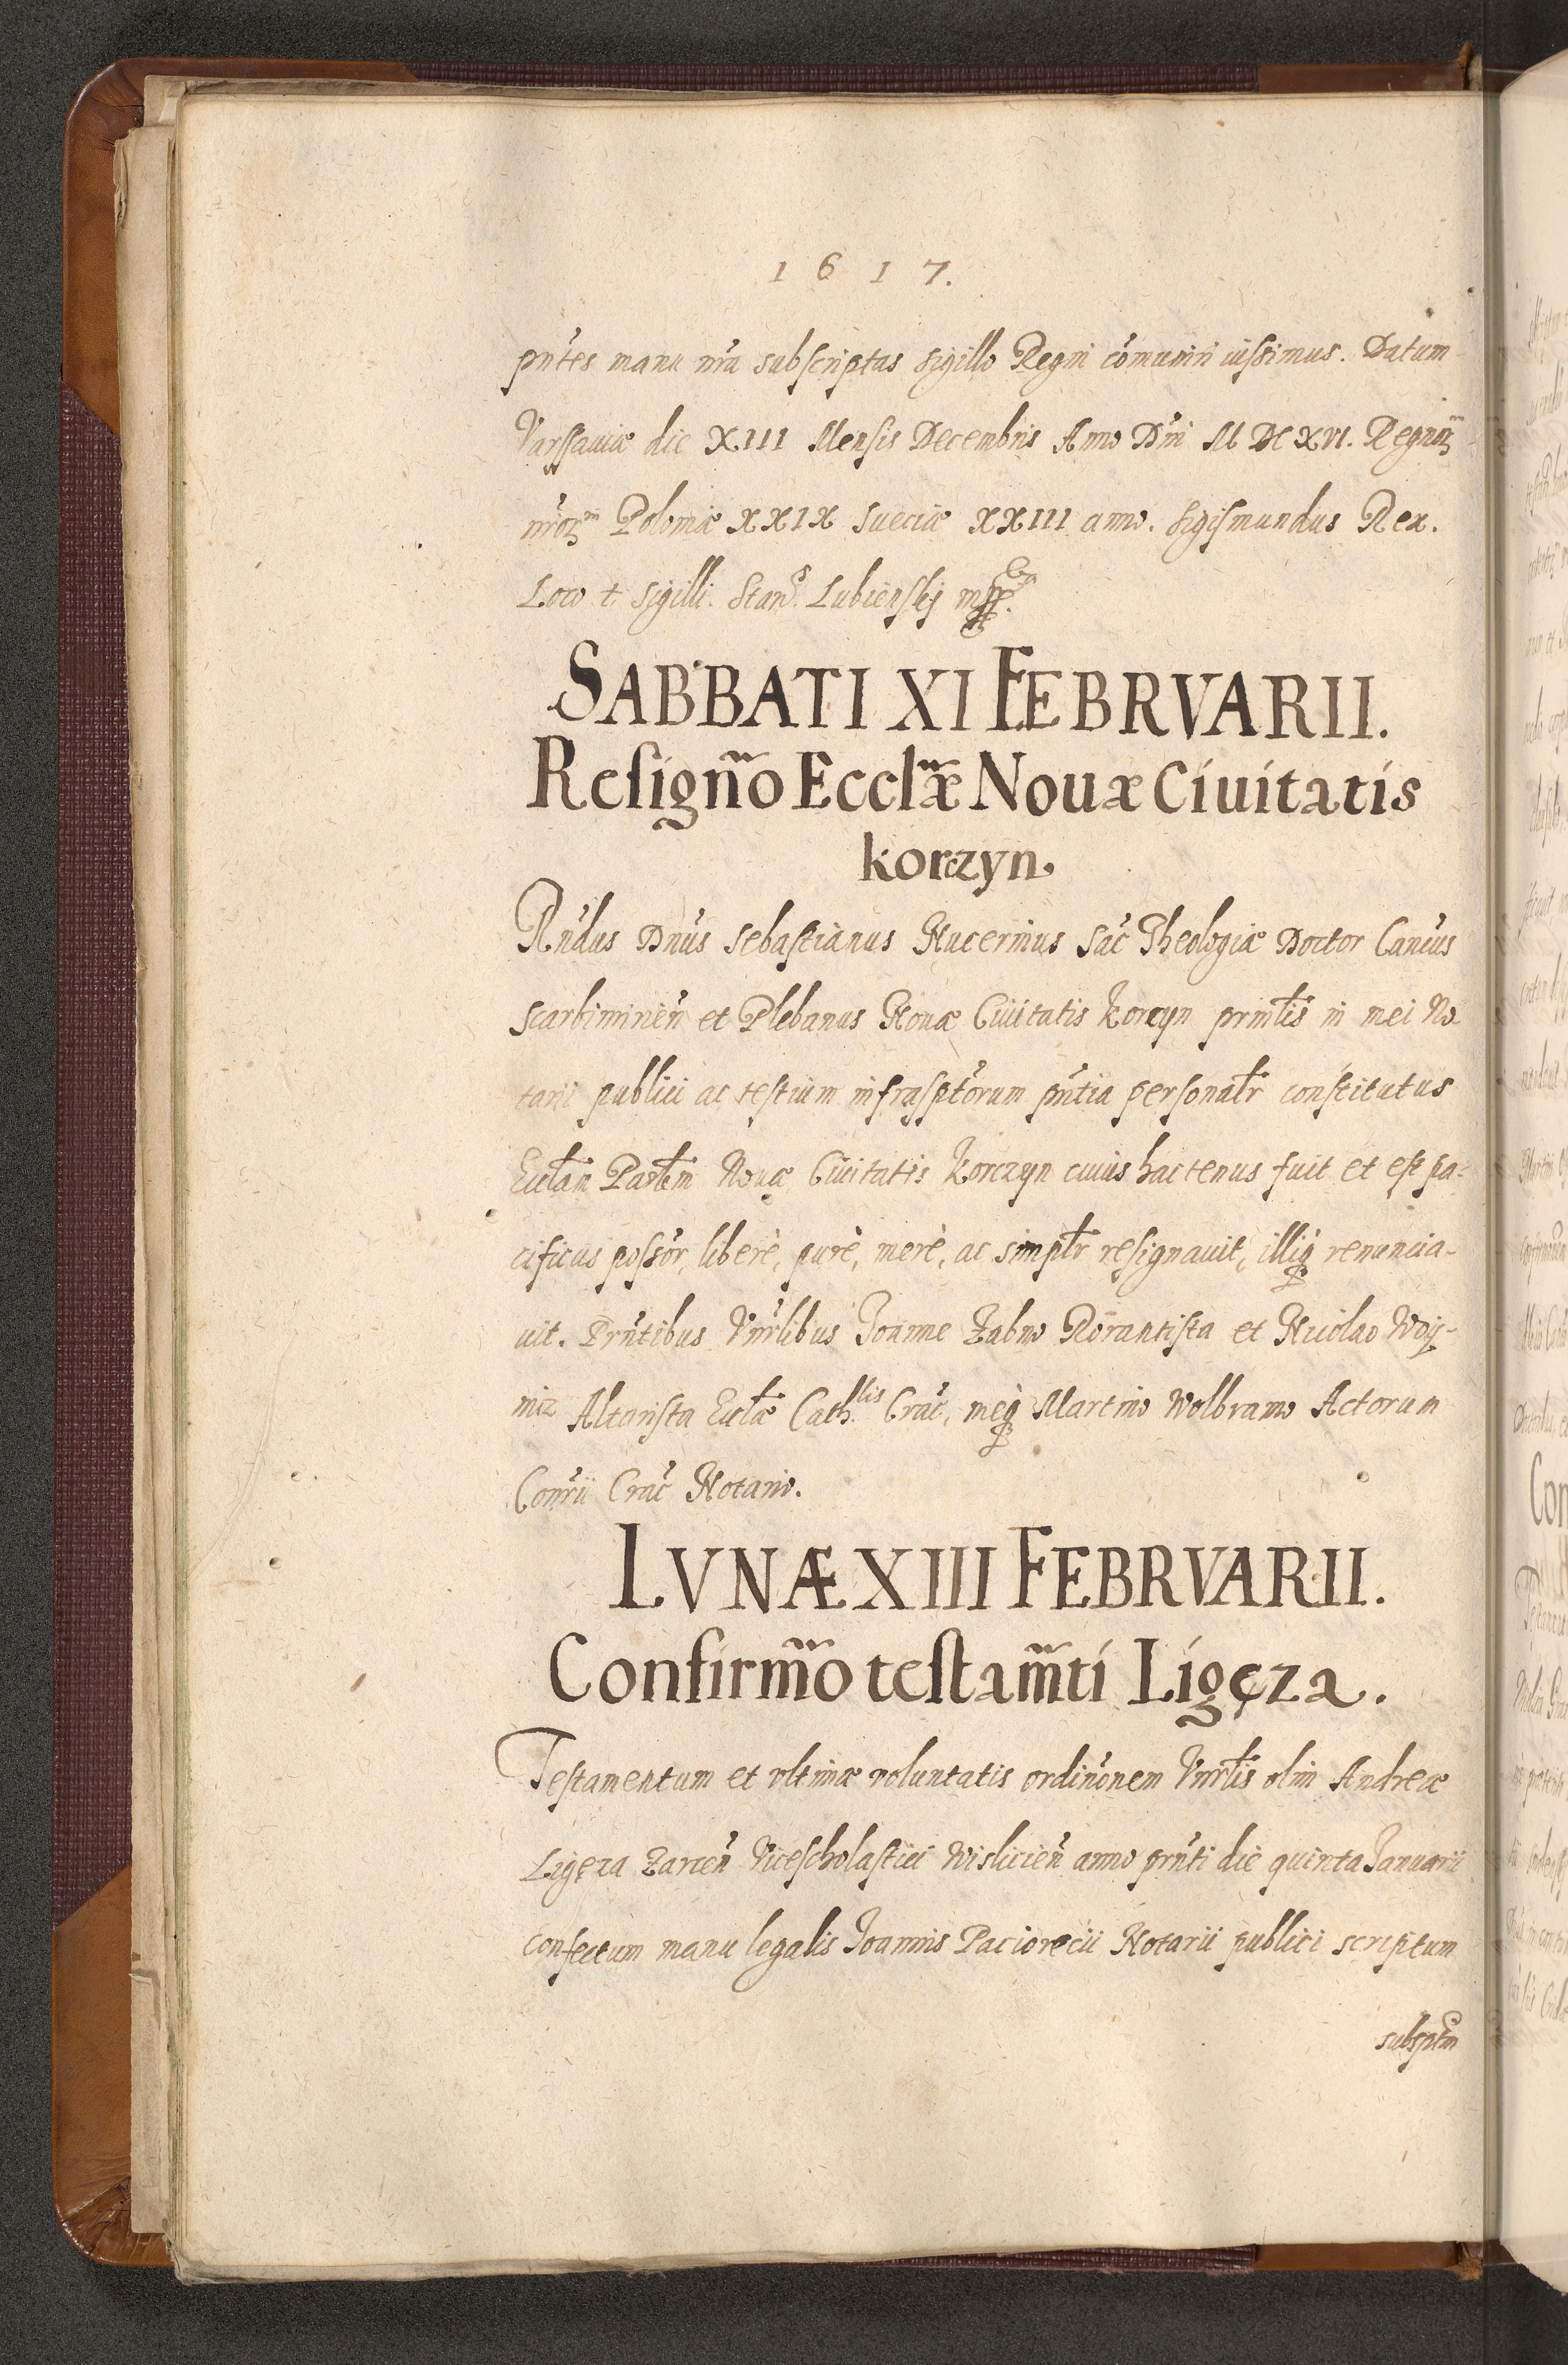 1617.
pñtes manu nrã subscriptas sigillo Regni cõmuniri iussimus. Datum
Varssauiæ die XIII Mensis Decembris Anno Dñi M DC XVI. Regnoꝝ
nroꝝ Poloniæ XXIX Sueciæ XXIII anno. Sigismundus Rex.
Loco † sigilli. Stans. Lubienskj mpp.
SABBATI XI FEBRVARII.
Resignõ Ecclæ̃ Nouæ Ciuitatis
korzyn.
Rñdus Dñus Sebastianus Nucerinus Sac̃ Theologiæ Doctor Canc̃us
Scarbimirieñ et Plebanus Nouæ Ciuitatis Korcyn prinl̃is in mei No-
tarii publici ac testium infrasptõrum pñtia personalr̃ constitutus
Eccl̃am Parl̃em Nouæ Ciuitatis Korczyn cuius hactenus fuit et est pa-
cificus possõr, liberè, purè, merè, ac simplr̃ resignauit, illiq̃ renuncia-
uit. Prñtibus Vnrl̃ibus Joanne Zabno Rõrantista et Nicolao Woy-
nic Altarista Eccl̃æ Cath.lis Crac̃, meq̃ Martino Wolbramo Actorum
Consr̃ii Crac̃ Notario.
LVNÆ XIII FEBRVARII.
Confirmõ testam̃ti Ligęza.
Testamentum et vltimæ voluntatis ordinõnem Vnrl̃is olim Andreæ
Ligęza Zarceñ Vicescholastici Wisliciеñ anno prñti die quinta Januarii
confectum manu legalis Joannis Paciorecii Notarii publici scriptum
subsptm̃